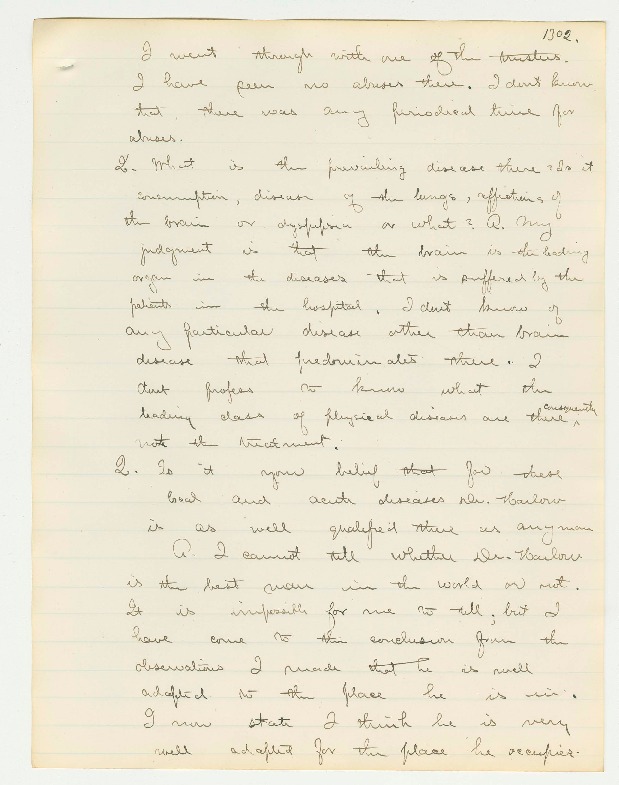 1302.
I went through with one of the trustees.
I have seen no abuses there. I don't know
that there was any periodical time for
abuses.
Q. What is the prevailing disease there? Is it
consumption, disease of the lungs, affections of
the brain or dyspepsia or what? A. My
judgment is that the brain is the leading
organ in the diseases that is suffered by the
patients in the hospital. I don't know of
any particular disease other than brain
disease that predominates there. I
don't profess to know what the
leading class of physical diseases are there consequently
not the treatment.
Q. Is it your belief that for these
local and acute diseases Dr. Harlow
is as well qualified there as any man
A. I cannot tell whether Dr. Harlow
is the best man in the world or not.
It is impossible for me to tell; but I
have come to the conclusion from the
observations I made that he is well
adapted to the place he is in.
I now state I think he is very
well adapted for the place he occupies.